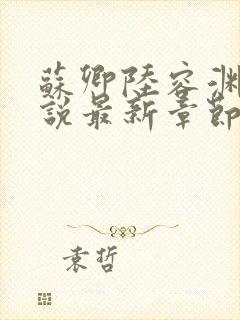 蘇卿陸容淵
說最新章節
袁哲